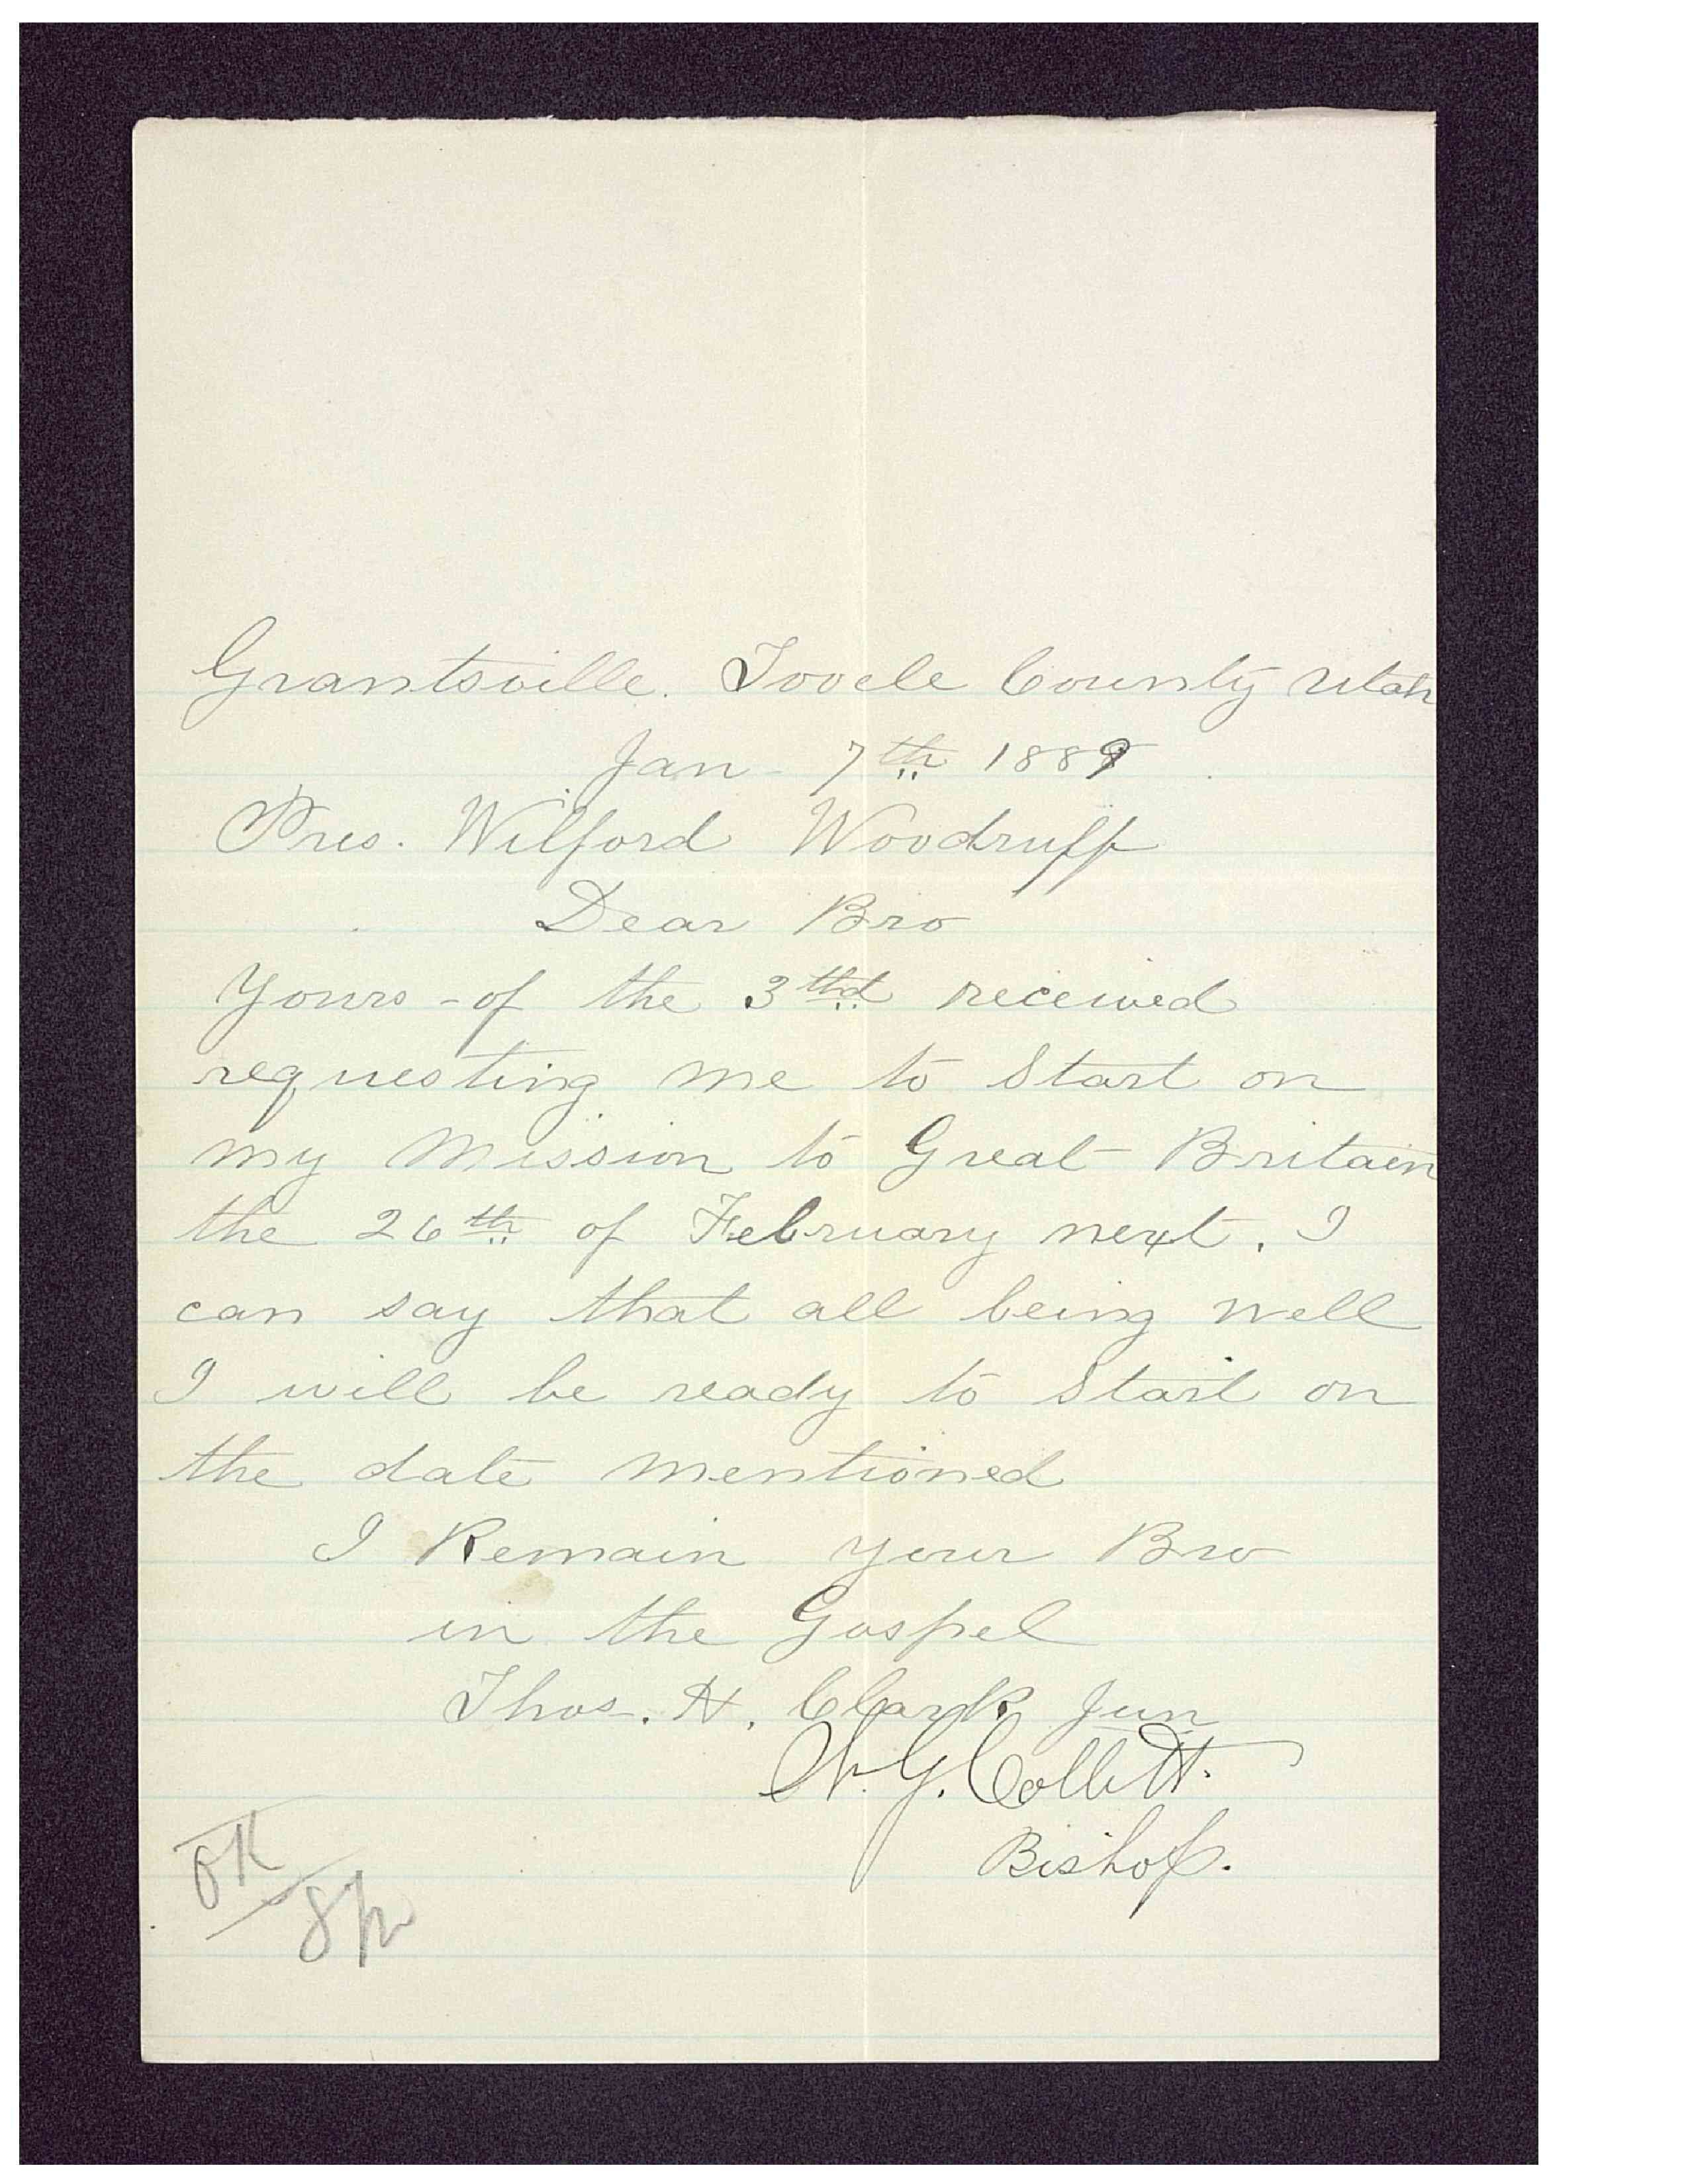 Grantsville. Tooele County Utah
Jan 7th 1889
Pres. Wilford Woodruff
Dear Bro
Yours of the 3thd received
requesting me to Start on
my Mission to Great Britain
the 26th of February next. I
can say that all being well
I will be ready to Start on
the date mentioned
I Remain your Bro
in the Gospel
Thos. H. Clark Jun
Collett.
Bishop.
OK